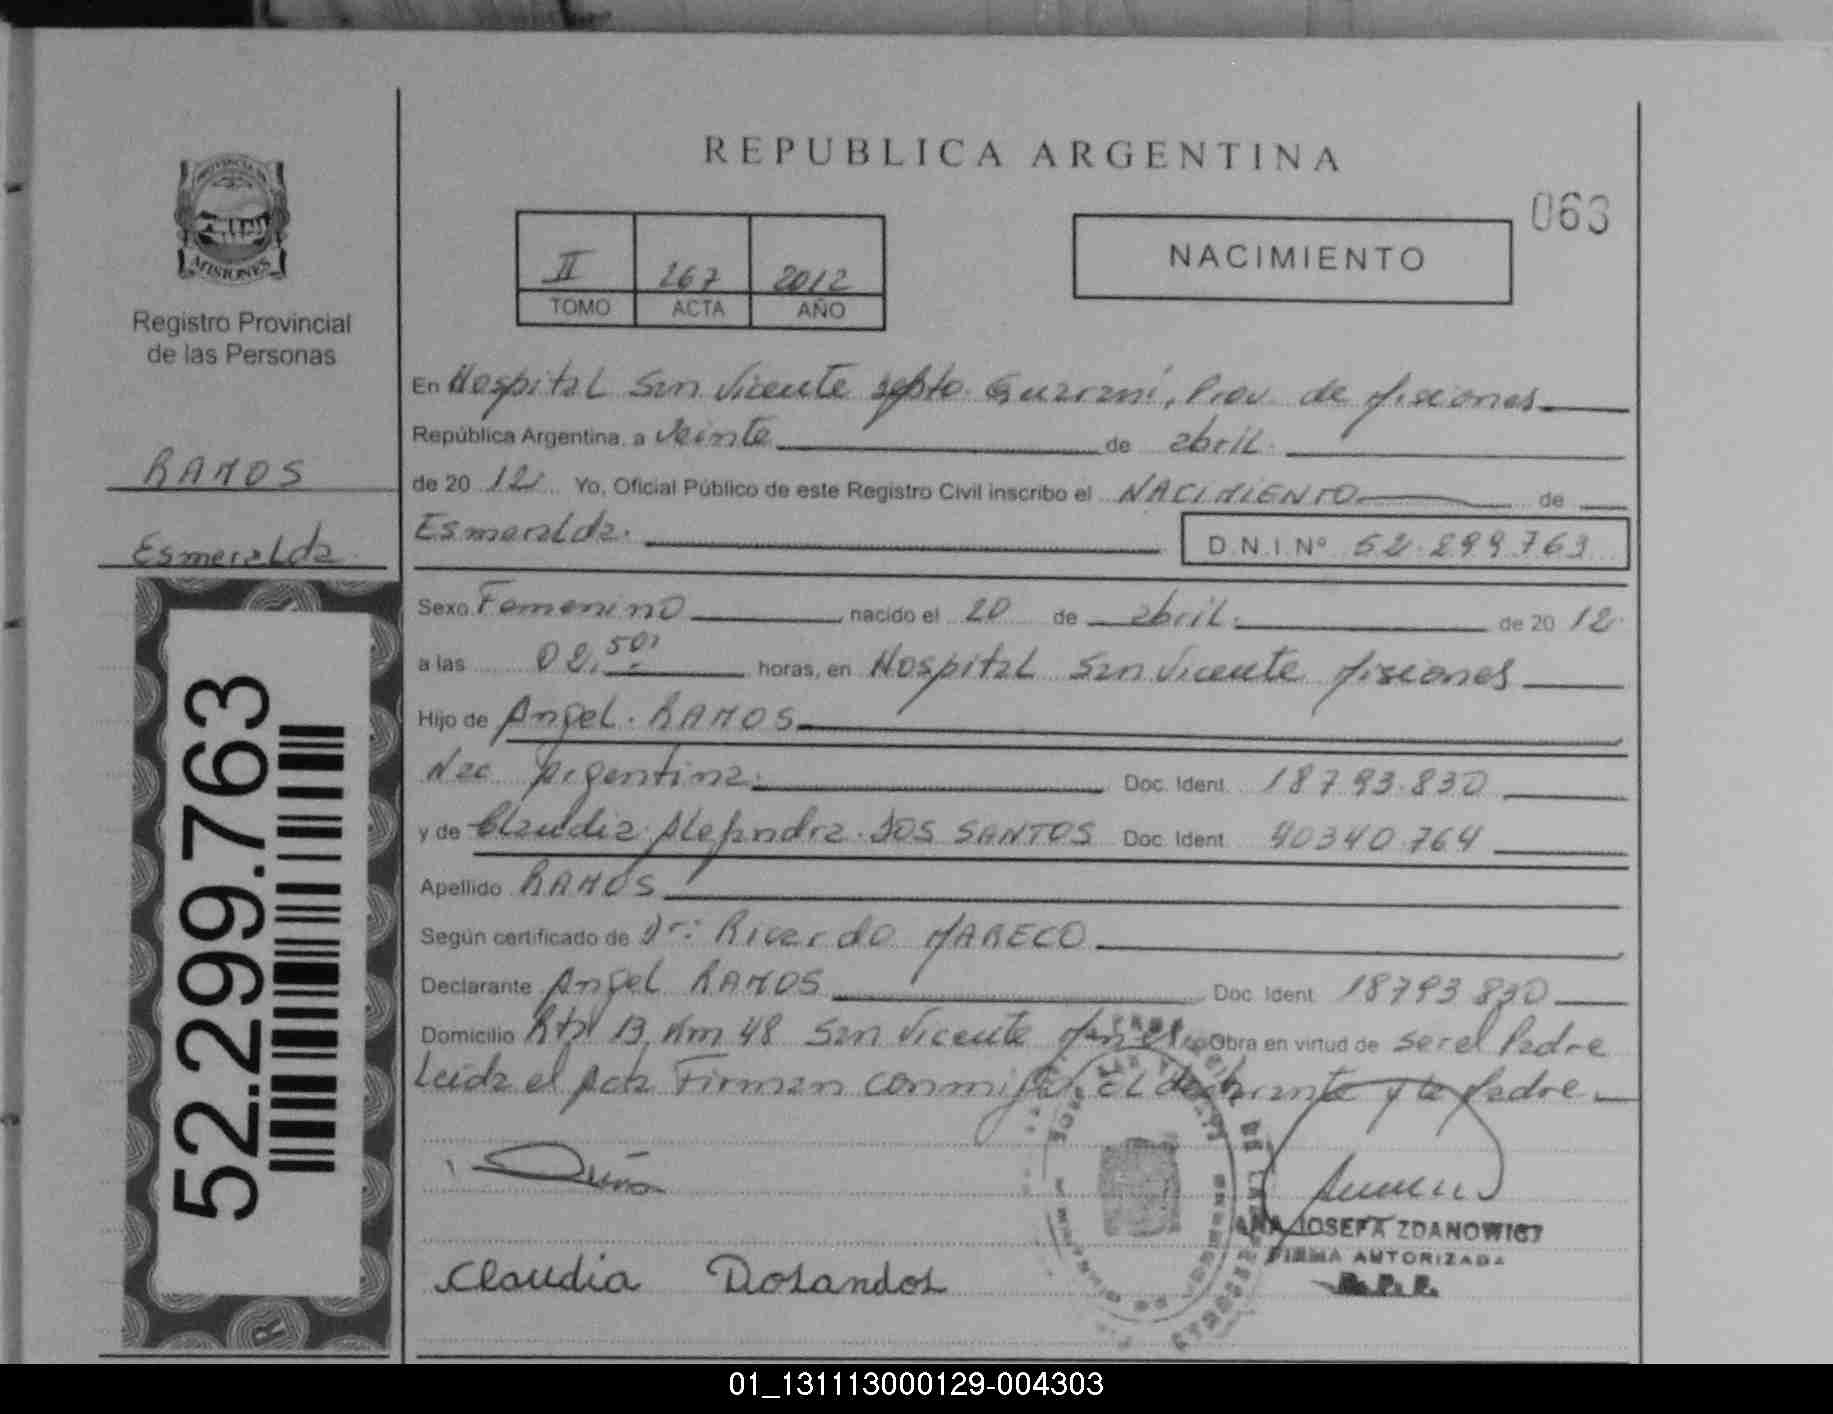 REPUBLICA ARGENTINA
063
II 267 2012
TOMO ACTA AÑO
NACIMIENTO
MISIONES
Registro Provincial
de las Personas
RAMOS
Esmeralda
52.299.763
R
En Hospital San Vicente Depto. Guarani, Prov. de Misiones
República Argentina, a Veinte de abril
de 2012 Yo, Oficial Público de este Registro Civil inscribo el NACIMIENTO de
Esmeralda. D.N.I. Nº 52.299.763
Sexo Femenino nacido el 20 de abril. de 2012
a las 02,50' horas, en Hospital San Vicente Misiones
Hijo de Angel. RAMOS
Nac Argentina. Doc. Ident. 18793.830
y de Claudia Alejandra DOS SANTOS Doc. Ident. 40340.764
Apellido RAMOS
Según certificado de Dr: Ricardo MARECO
Declarante Angel RAMOS Doc. Ident. 18793830
Domicilio Rta 13 Km 48 San Vicente Obra en virtud de ser el Padre
Leida el Acta Firman conmigo el declarante y la Madre
Claudia Dosandos
ANA JOSEFA ZDANOWICZ
FIRMA AUTORIZADA
R.P.P.
01_131113000129-004303